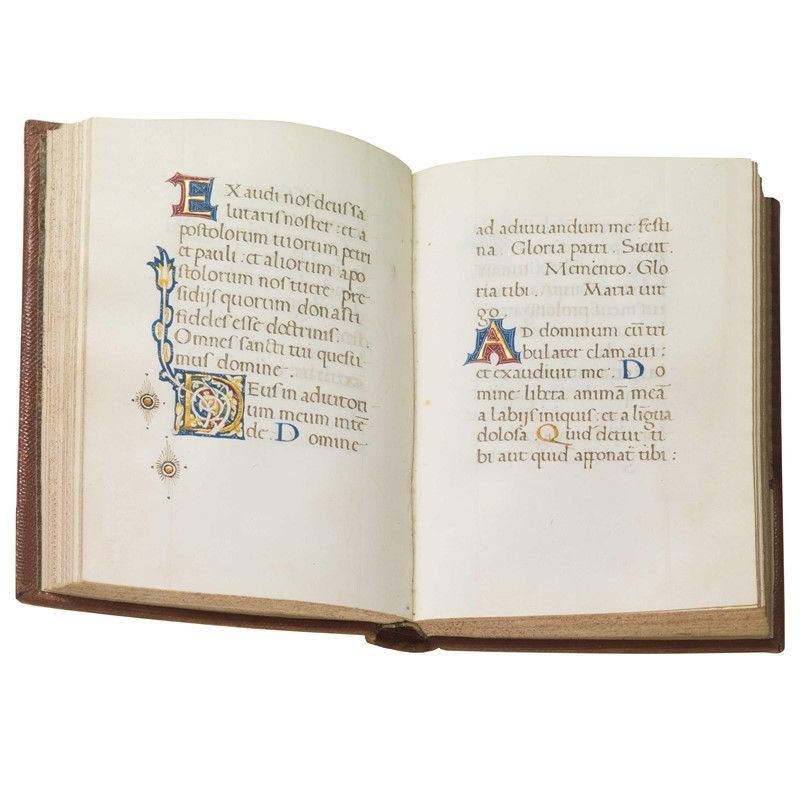 EXaudi nos deus sa
lutaris noster : et a
postolorum tuorum petri
et pauli : et aliorum apo
stolorum nos tuere pre
sidijs quorum donasti
fideles esse doctrinis.
Omnes sancti tui quesu
mus domine
DEus in adiutori
um meum intē
de. Domine
ad adiuuandum me festi
na. Gloria patri. Sicut.
Memento. Glo
ria tibi. Maria uir
go.
AD dominum cū tri
bularer clamaui :
et exaudiuit me. Do
mine libera animā meā
a labijs iniquis : et a ligua
dolosa. Quid detur ti
bi aut quid apponat̄ tibi :